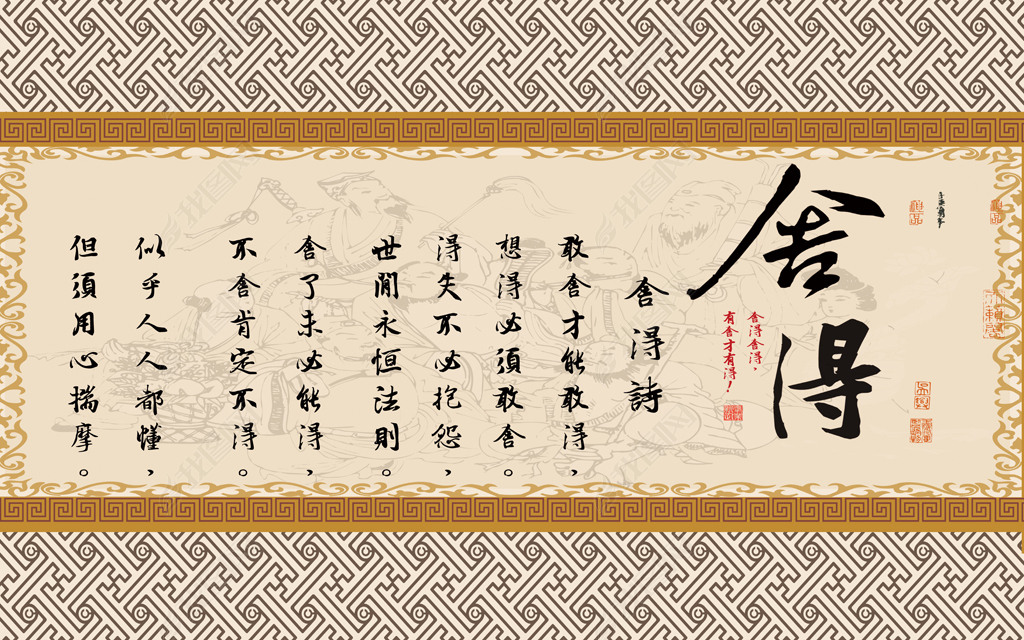 舍得
舍得舍得，
有舍才有得！
舍得詩
敢舍才能敢得，
想得必須敢舍。
得失不必抱怨，
世間永恒法則。
舍了未必能得，
不舍肯定不得。
似乎人人都懂，
但須用心揣摩。